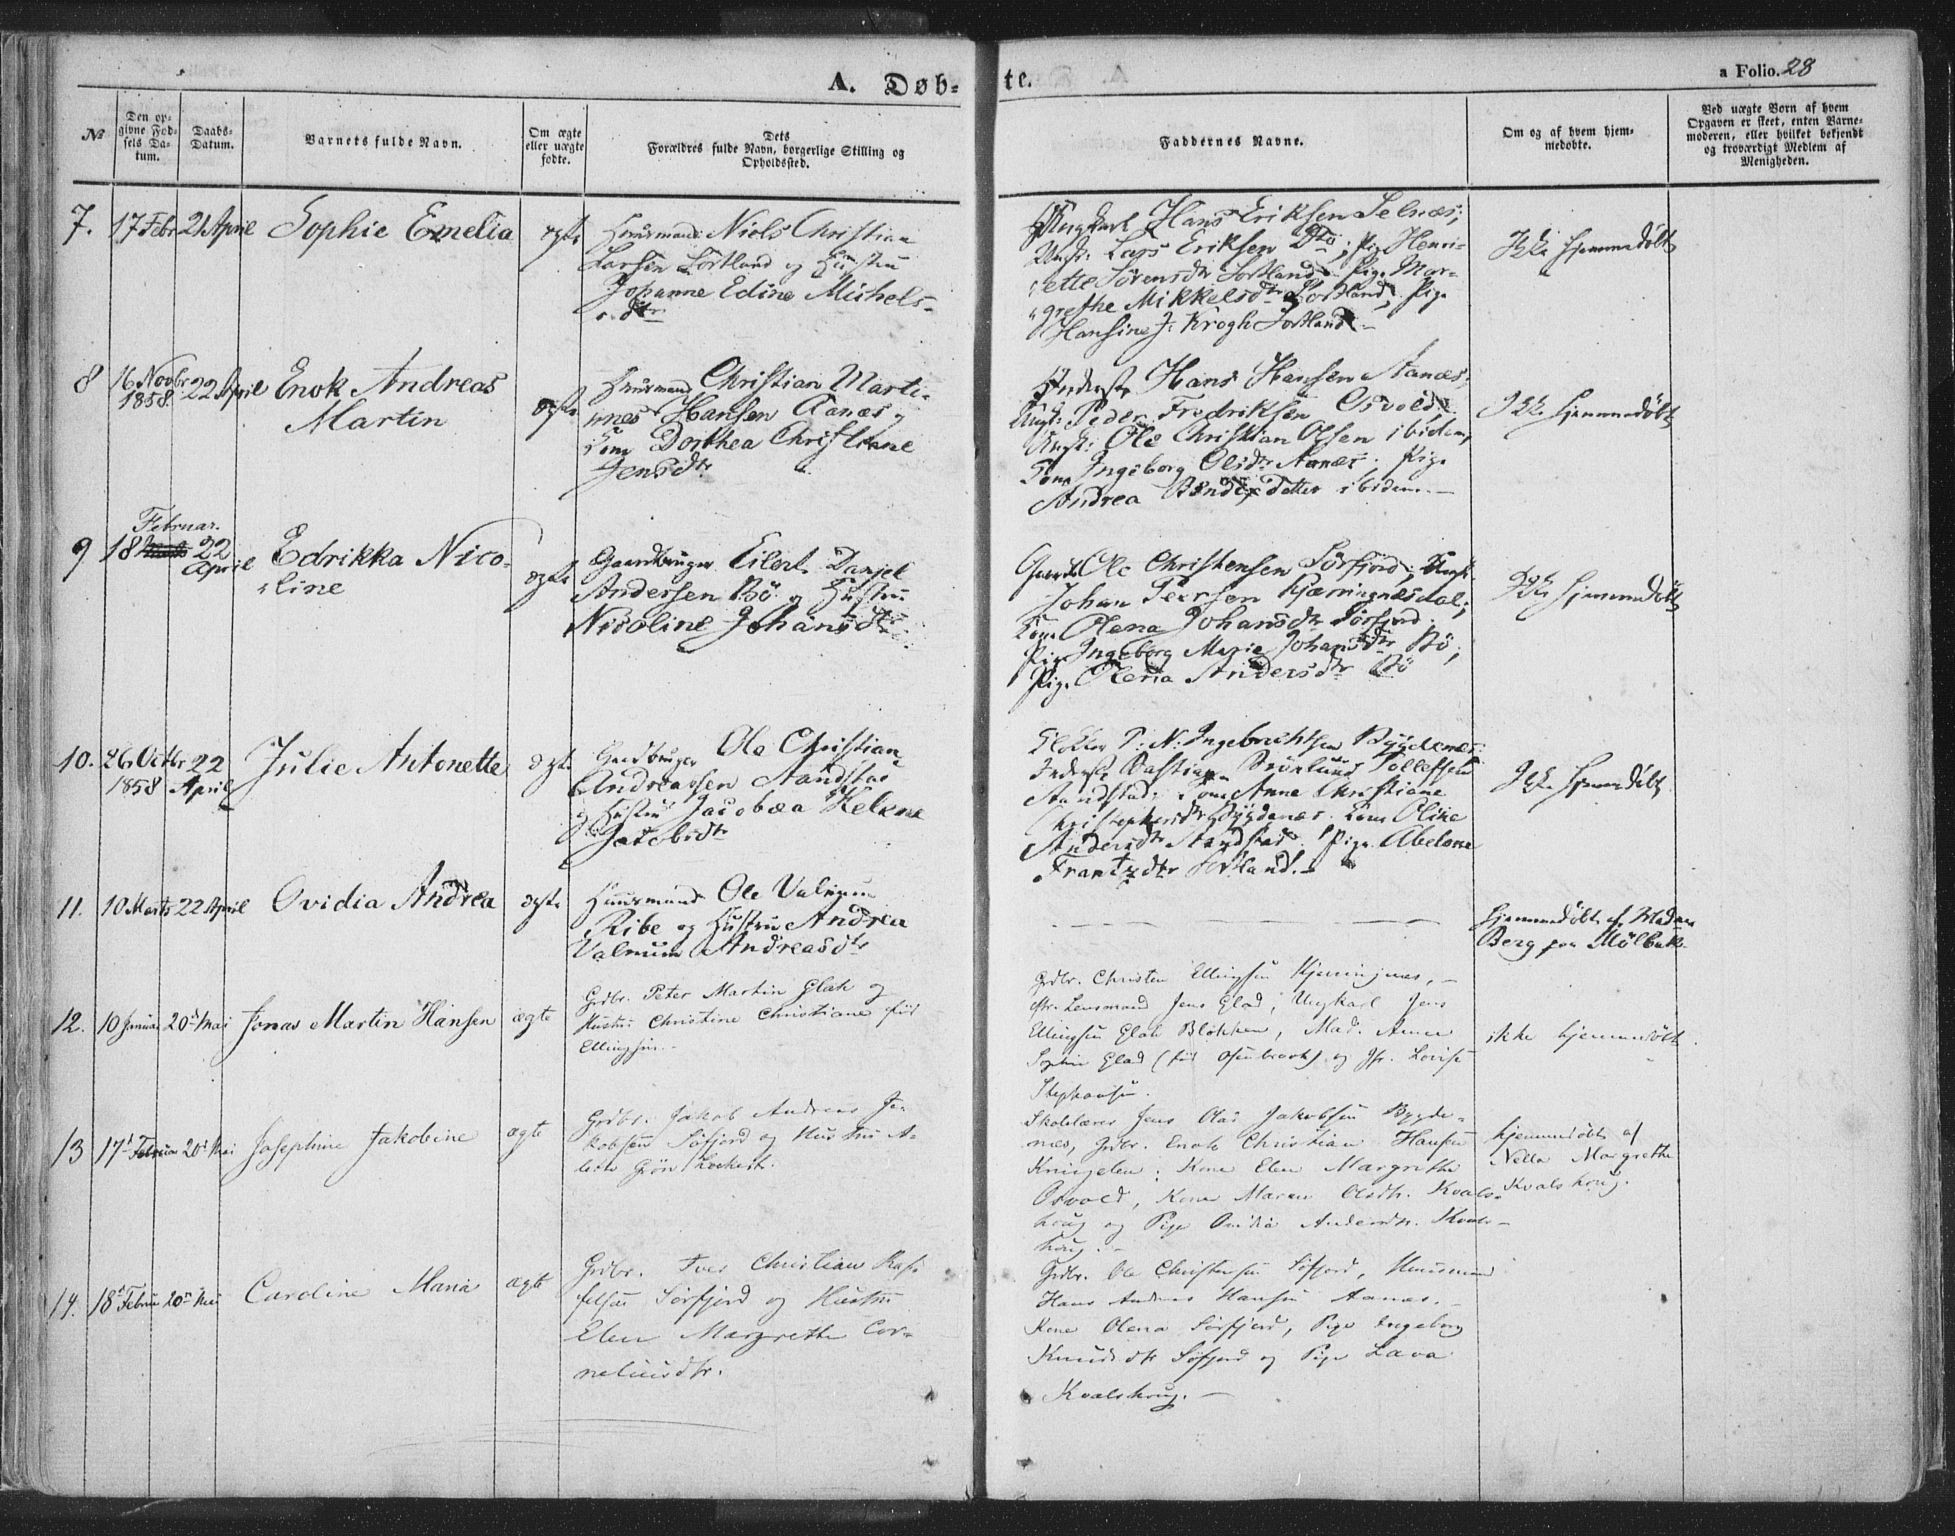 A. Døb-
te.
a Folio. 28
No
Den op-
givne Fød-
sels Da-
tum.
Daabs-
Datum.
Barnets fulde Navn.
Om ægte
eller uægte
fødte.
Dets
Forældres fulde Navn, borgerlige Stilling og
Opholdssted.
Faddernes Navne.
Om og af hvem hjem-
medøbte.
Ved uægte Børn af hvem
Opgaven er skeet, enten Barne-
moderen, eller hvilket bekjendt
og troværdigt Medlem af
Menigheden.
7.
17 Febr
21 April
Sophie Emelia
ægte
Huusmand Niols Christian
Larsen Sortland og Hustru
Johanne Edine Michels-
dtr
Ungkarl Hans Eriksen Selnæs;
Ungk: Lars Eriksen Dto; Pige Henri-
ette Sörensdtr Sortland. Pige Mar-
grethe Mikkelsdtr Sortland, Pige
Hansine J. Krogh Sortland.
Ikke Hjemmedöbt
8
16 Novbr
1858.
22 April
Enok Andreas
Martin
ægte
Huusmand Christian Marti-
nnes Hansen Aanæs og
Kone Dorthea Christiane
Jensdtr
Inderst Hans Hansen Aanæs;
Ungk: Peder Fredriksen Osvold;
Ungk: Ole Christian Olsen ibidem,
Kone Ingeborg Olsdtr Aanæs. Pige
Andrea Datter ibidem.
Ikke Hjemmedöbt
9
Februar.
18
22
April
Edrikka Nico-
line
ægte
Gaardbruger Eilert Danjel
Andersen Bö og Hustru
Nicoline Johansdtr.
Gaardb Ole Christensen Sörfjord; Ungk
Johan Peersen Kjærringnæsdal;
Kone Olena Johansdtr Sörfjord.
Pige Ingeborg Marie Johansdtr Bö;
Pige Olena Andersdtr Bö
Ikke Hjemmedöbt
10.
26 Octbr
1858
22
April
Julie Antonette
ægte
Gaardbruger Ole Christian
Andreassen Sandstad
og Hustru Jacobæa Helene
Jacobsdtr
Klokker P: N: Ingebrichtsen Bygdenæs:
Inderst Bastian Brönlund Tollefsen
Sandstad; Kone Anne Christiane
Christophersdtr Bygdenæs. Kone Oline
Andersdtr Sandstad. Pige Abelone
Frantzdtr Sortland.
Ikke Hjemmedöbt
11.
10 Marts
22 April
Ovidia Andrea
ægte
Huusmand Ole
Ribe og Hustru Andrea
Andreasdtr
Hjemmedöbt af Madam
Berg paa Mölbæk.
12.
10 Januar
20de Mai
Jonas Martin Hansen
ægte
Grdbr. Peter Martin Glak og
Hustru Christine Christiane föd
Ellingsen.
Grdbr. Christen Ellingsen Kjerringnæs,
Lensmand Jens Glad, Ungkarl Jens
Ellingsen Glak Blokken, Mad. Anne
Sophie Glad (föd Osenbrock) og Jfr. Lovise
Stephansen.
ikke hjemmedöbt.
13
17de Februar
20de Mai
Josephine Jakobine
ægte
Grdbr. Jakob Andreas Ja-
kobsen Söfjord og Hustru A-
lette Grön Lockert.
Skolelærer Jens Olai Jakobsen Bygde-
næs, Grdbr. Enok Christian Hansen
Kringelen; Kone Elen Margrethe
Osvold, Kone Maren Olsdtr. Kvals-
houg og Pige Ovidia Andersdtr. Kvals-
houg.
hjemmedöbt af
Nella Margrethe
Kvalshoug.
14.
18de Februar
20de Mai
Caroline Maria
ægte
Grdbr. Iver Christian Kas-
felsen Sörfjord og Hustru
Elen Margrethe Cor-
neliusdtr.
Grdbr. Ole Christensen Söfjord, Huusmand
Hans Andreas Hansen Aanæs.
Kone Olena Sörfjord, Pige Ingeborg
Knudsdtr Söfjord og Pige Lava
Kvalshoug.